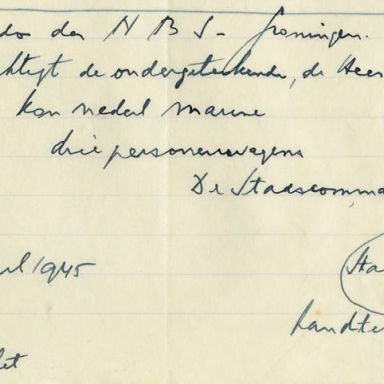 do der N B S - Groningen.
chtigt de ondergetekende, de Heer
kon nederl marine
drie personenwagens
De Stafscomma
ril 1945
Sta
handte
et